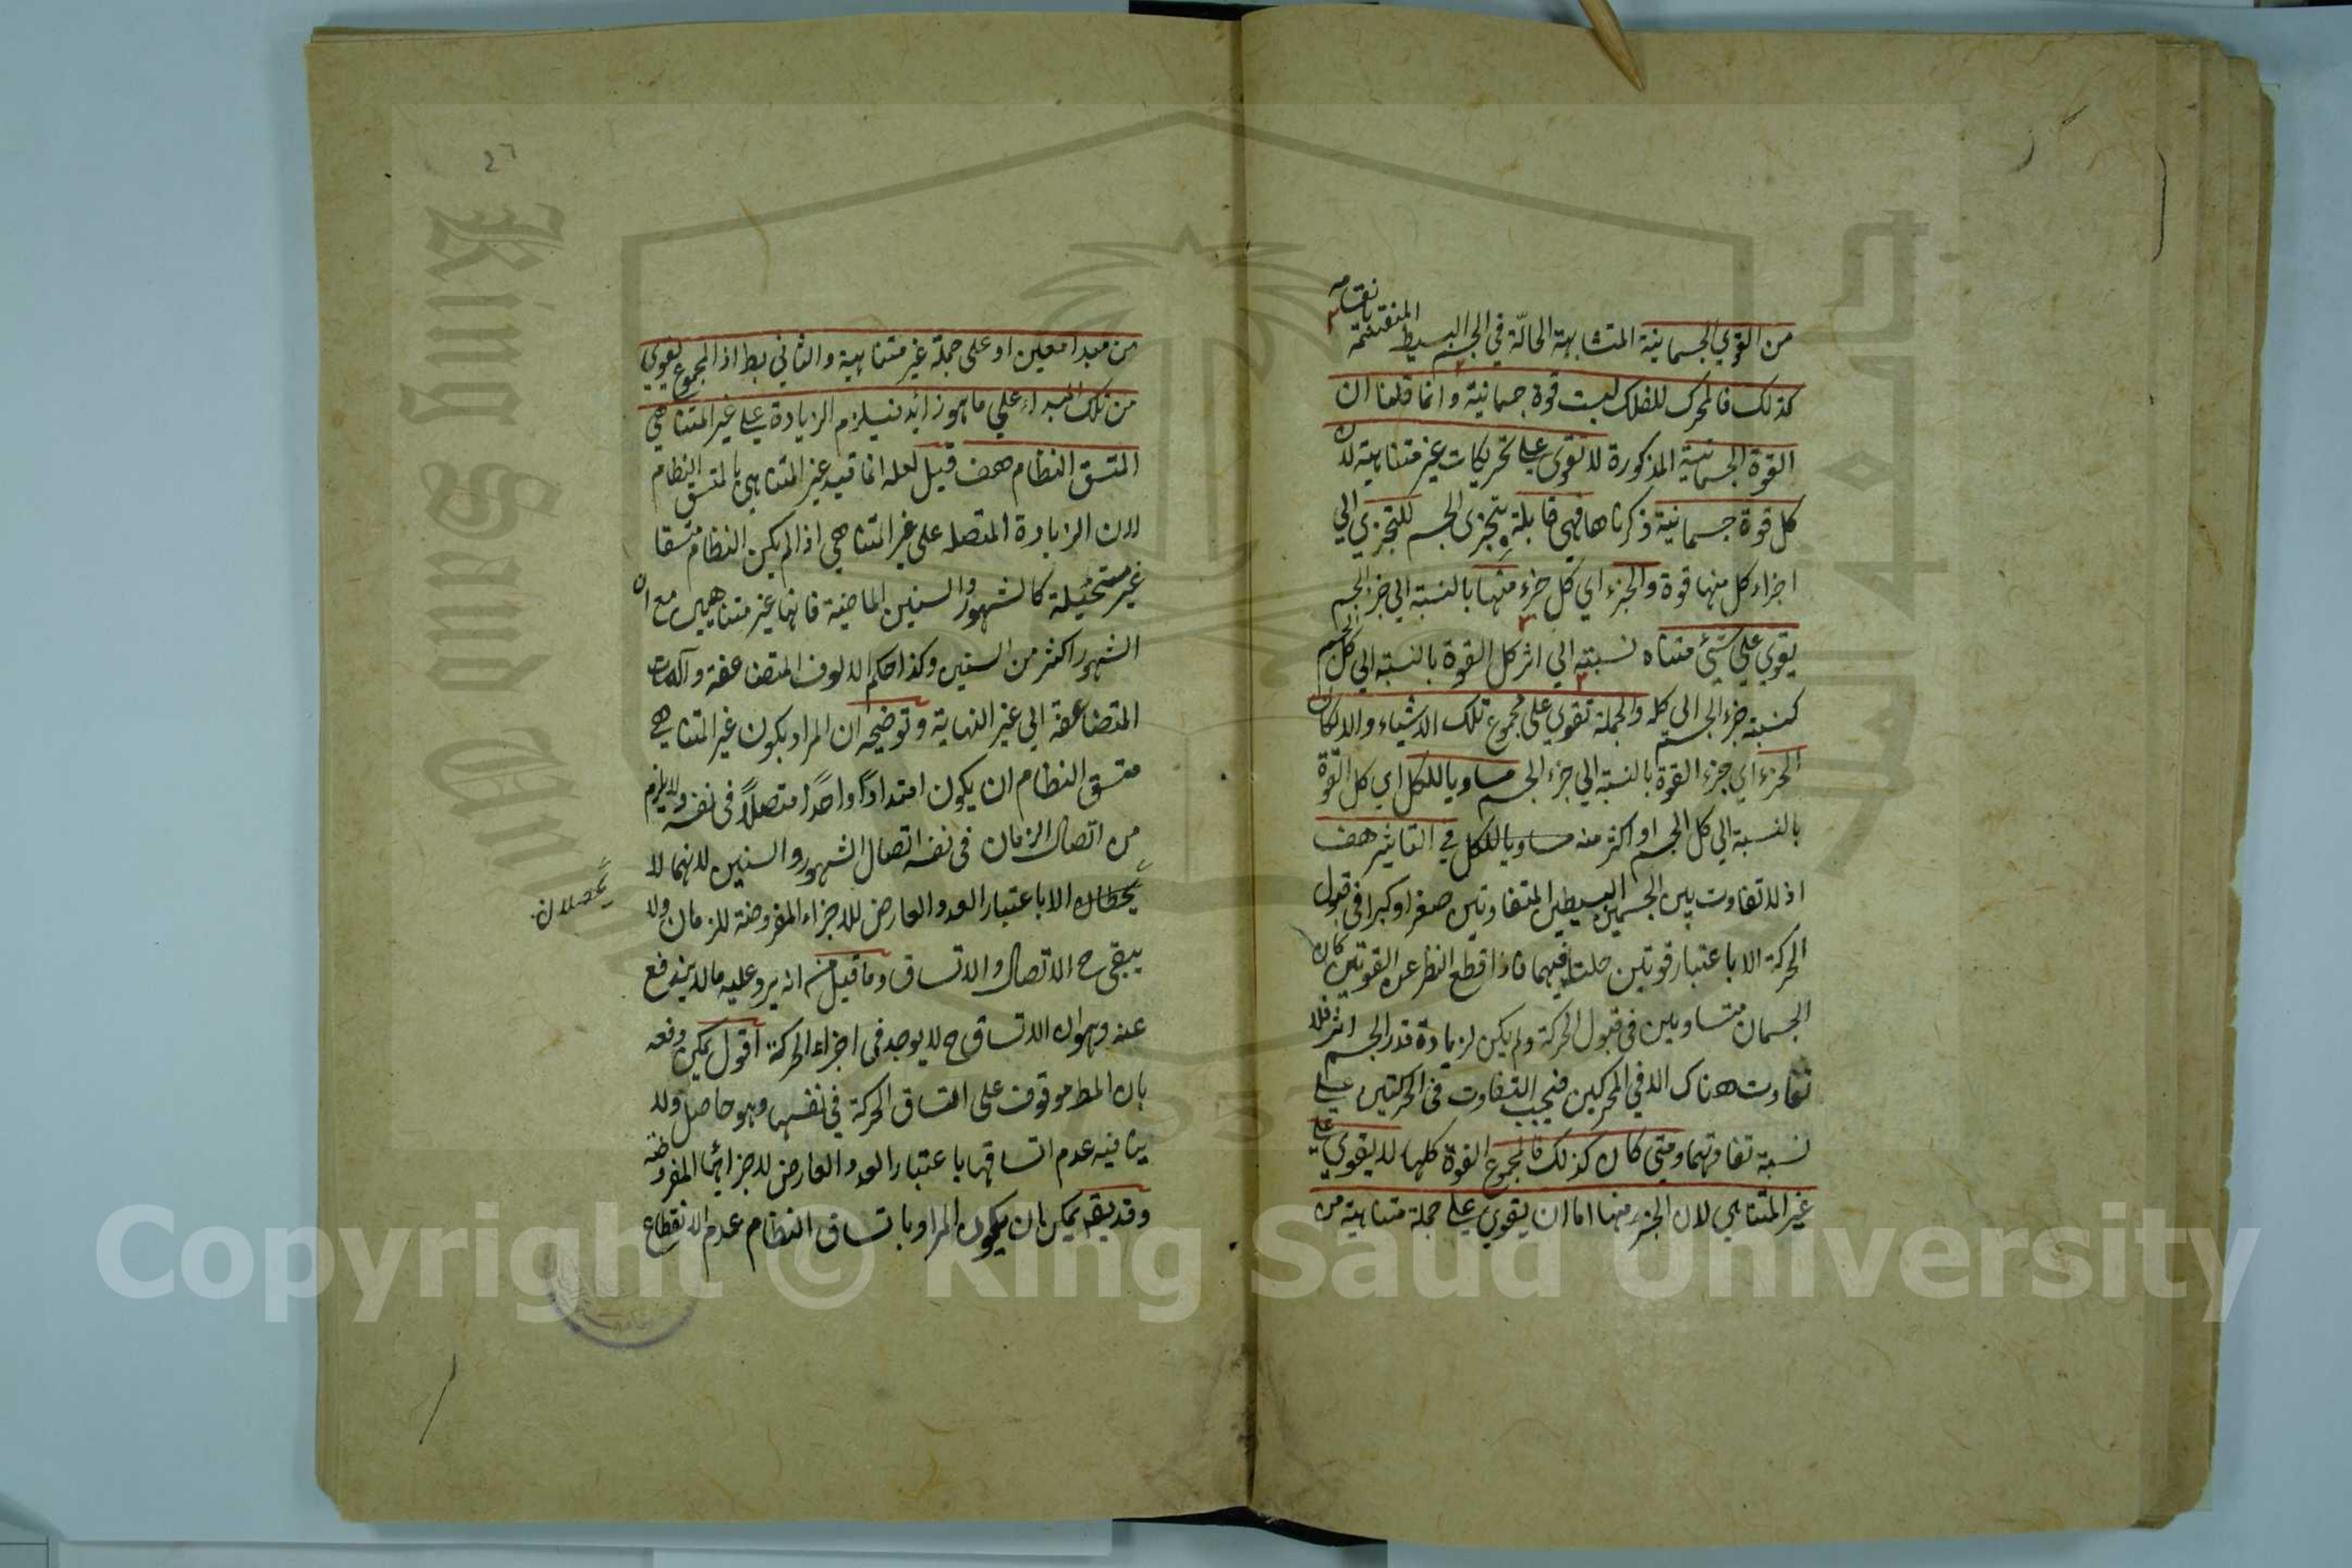 من القوي الجسمانية المتشابهة الحالّة في الجسم البسيط المنقسمة
بانقسامه
كذلك فالمحرك للفلك ليست قوة جسمانية وانما قلنا ان
القوة الجسمانية المذكورة لا تقوى على تحريكات غير متناهية لان
كل قوة جسمانية ذكرناها فهي قابلة بتجزى الجسم للتجزي الي
اجزاء كل منها قوة والجزء اي كل جزء منها بالنسبة الي جزء الجسم
يقوي علي شيئ متناه نسبته الي اثر كل القوة بالنسبة الي كل الجسم
كنسبة جزء الجسم الي كله والجملة تقوي على مجموع تلك الاشياء والا لكان
الجزء اي جزء القوة بالنسبة الي جزء الجسم مساويا للكل اي كل القوة
بالنسبة الي كل الجسم او اكثر منه مساويا للكل في التاثير هف
اذ لا تفاوت بين الجسمين البسيطين المتفاوتين صغرا وكبرا في قبول
الحركة الا باعتبار قوتين حلتا فيهما فاذا قطع النظر عن القوتين كان
الجسمان متساويين في قبول الحركة ولم يكن لزيادة قدر الجسم اثر فلا
تفاوت هناك الا في المحركين فيجب التفاوت في الحركتين على
نسبة تفاوتهما ومتى كان كذلك فالمجموع القوة كلها لا يقوي على
غير المتناهي لان الجزء منها اما ان يقوي على جملة متناهية من
26
من مبدا معين او على جملة غير متناهية والثاني بط اذ المجموع يقوي
من تلك المبداء علي ما هو زائد فيلزم الزيادة على غير المتناهي
المتسق النظام هف قيل لعله انما قيد غير المتناهي بالمتسق النظام
لان الزيادة المتصلة على غير المتناهي اذا لم يكن النظام متسقا
غير مستحيلة كالشهور والسنين الماضية فانها غير متناهيين مع ان
الشهور اكثر من السنين وكذا حكم الالوف المتضاعفة والمات
المتضاعفة الي غير النهاية وتوضيحه ان المراد بكون غير المتناهي
متسق النظام ان يكون امتدادًا واحدًا متصلًا في نفسه ولا يلزم
من اتصال الزمان في نفسه اتصال الشهور والسنين لانهما لا
يحصلان
يحطان الا باعتبار العدد العارض للاجزاء المفروضة للزمان ولا
يبقى ح الاتصال والاتساق وما قيل من انه يرد عليه ما لا يندفع
عنه وهو ان الاتساق ح لا يوجد في اجزاء الحركة اقول يمكن دفعه
بان المط موقوف على اتساق الحركة في نفسها وهو حاصل ولا
ينافيه عدم اتساقها باعتبار العدد العارض لاجزائها المفروضة
وقد يقر يمكن ان يكون المراد باتساق النظام عدم الانقطاع
King Saud University
Copyright © King Saud University